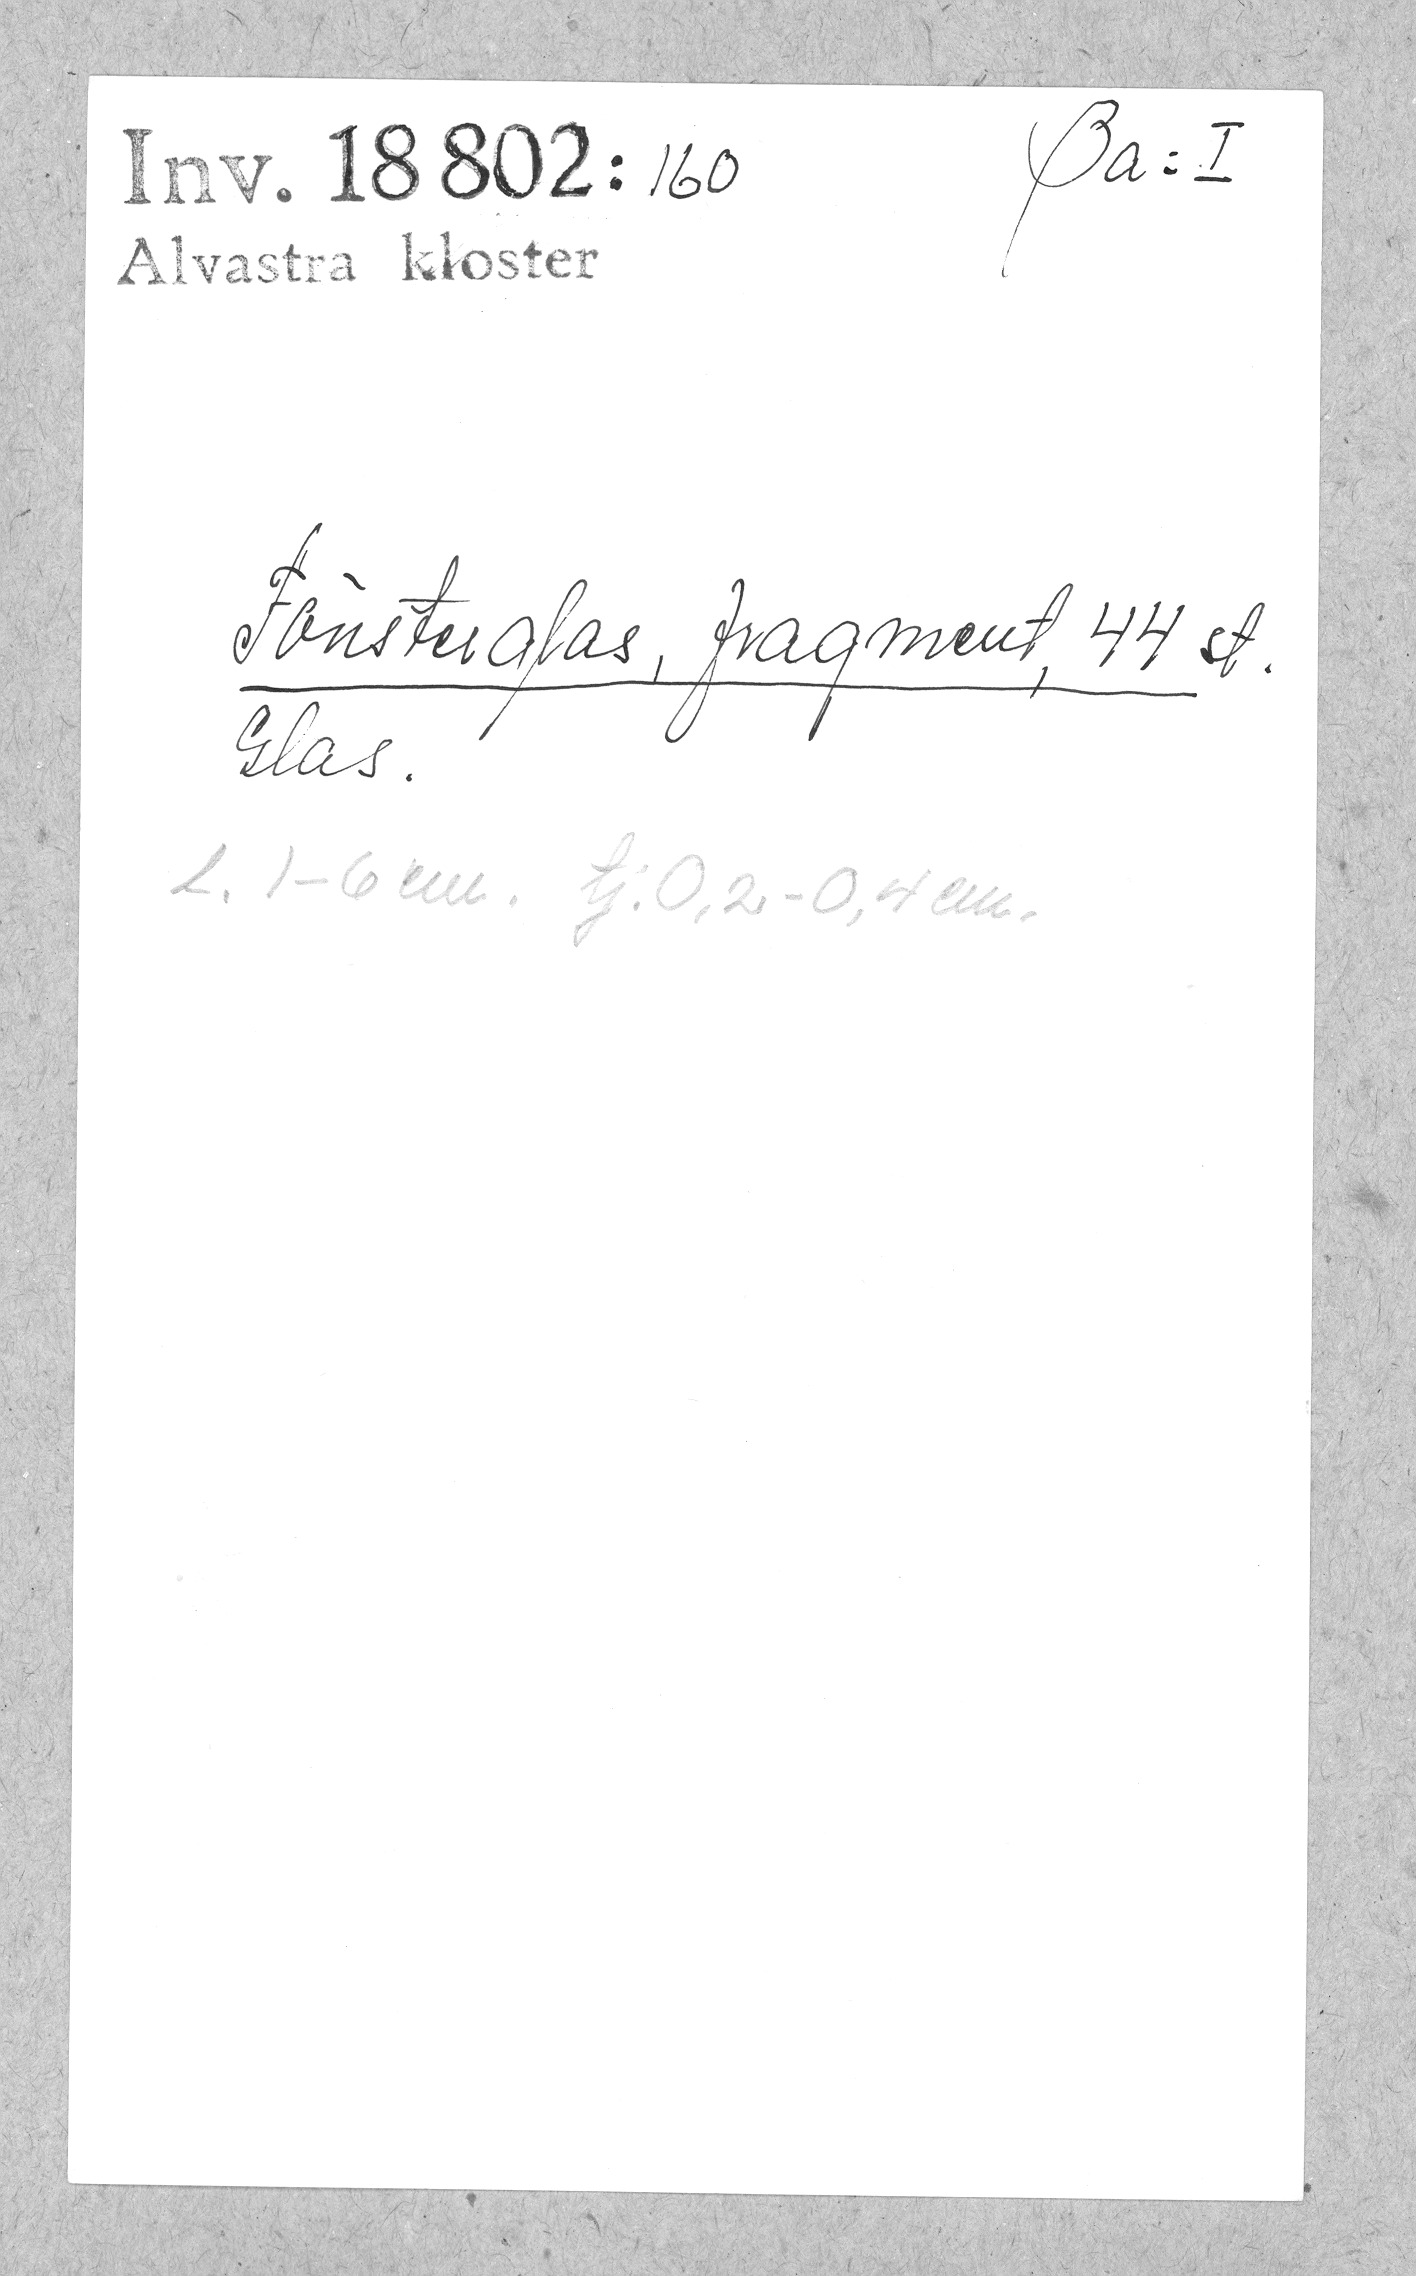 Inv. 18 802:160
Ba: I
Alvastra kloster
Fönsterglas, fragment, 44 st.
Glas.
L. 1-6 cm. tj. 0,2-0,4 cm.